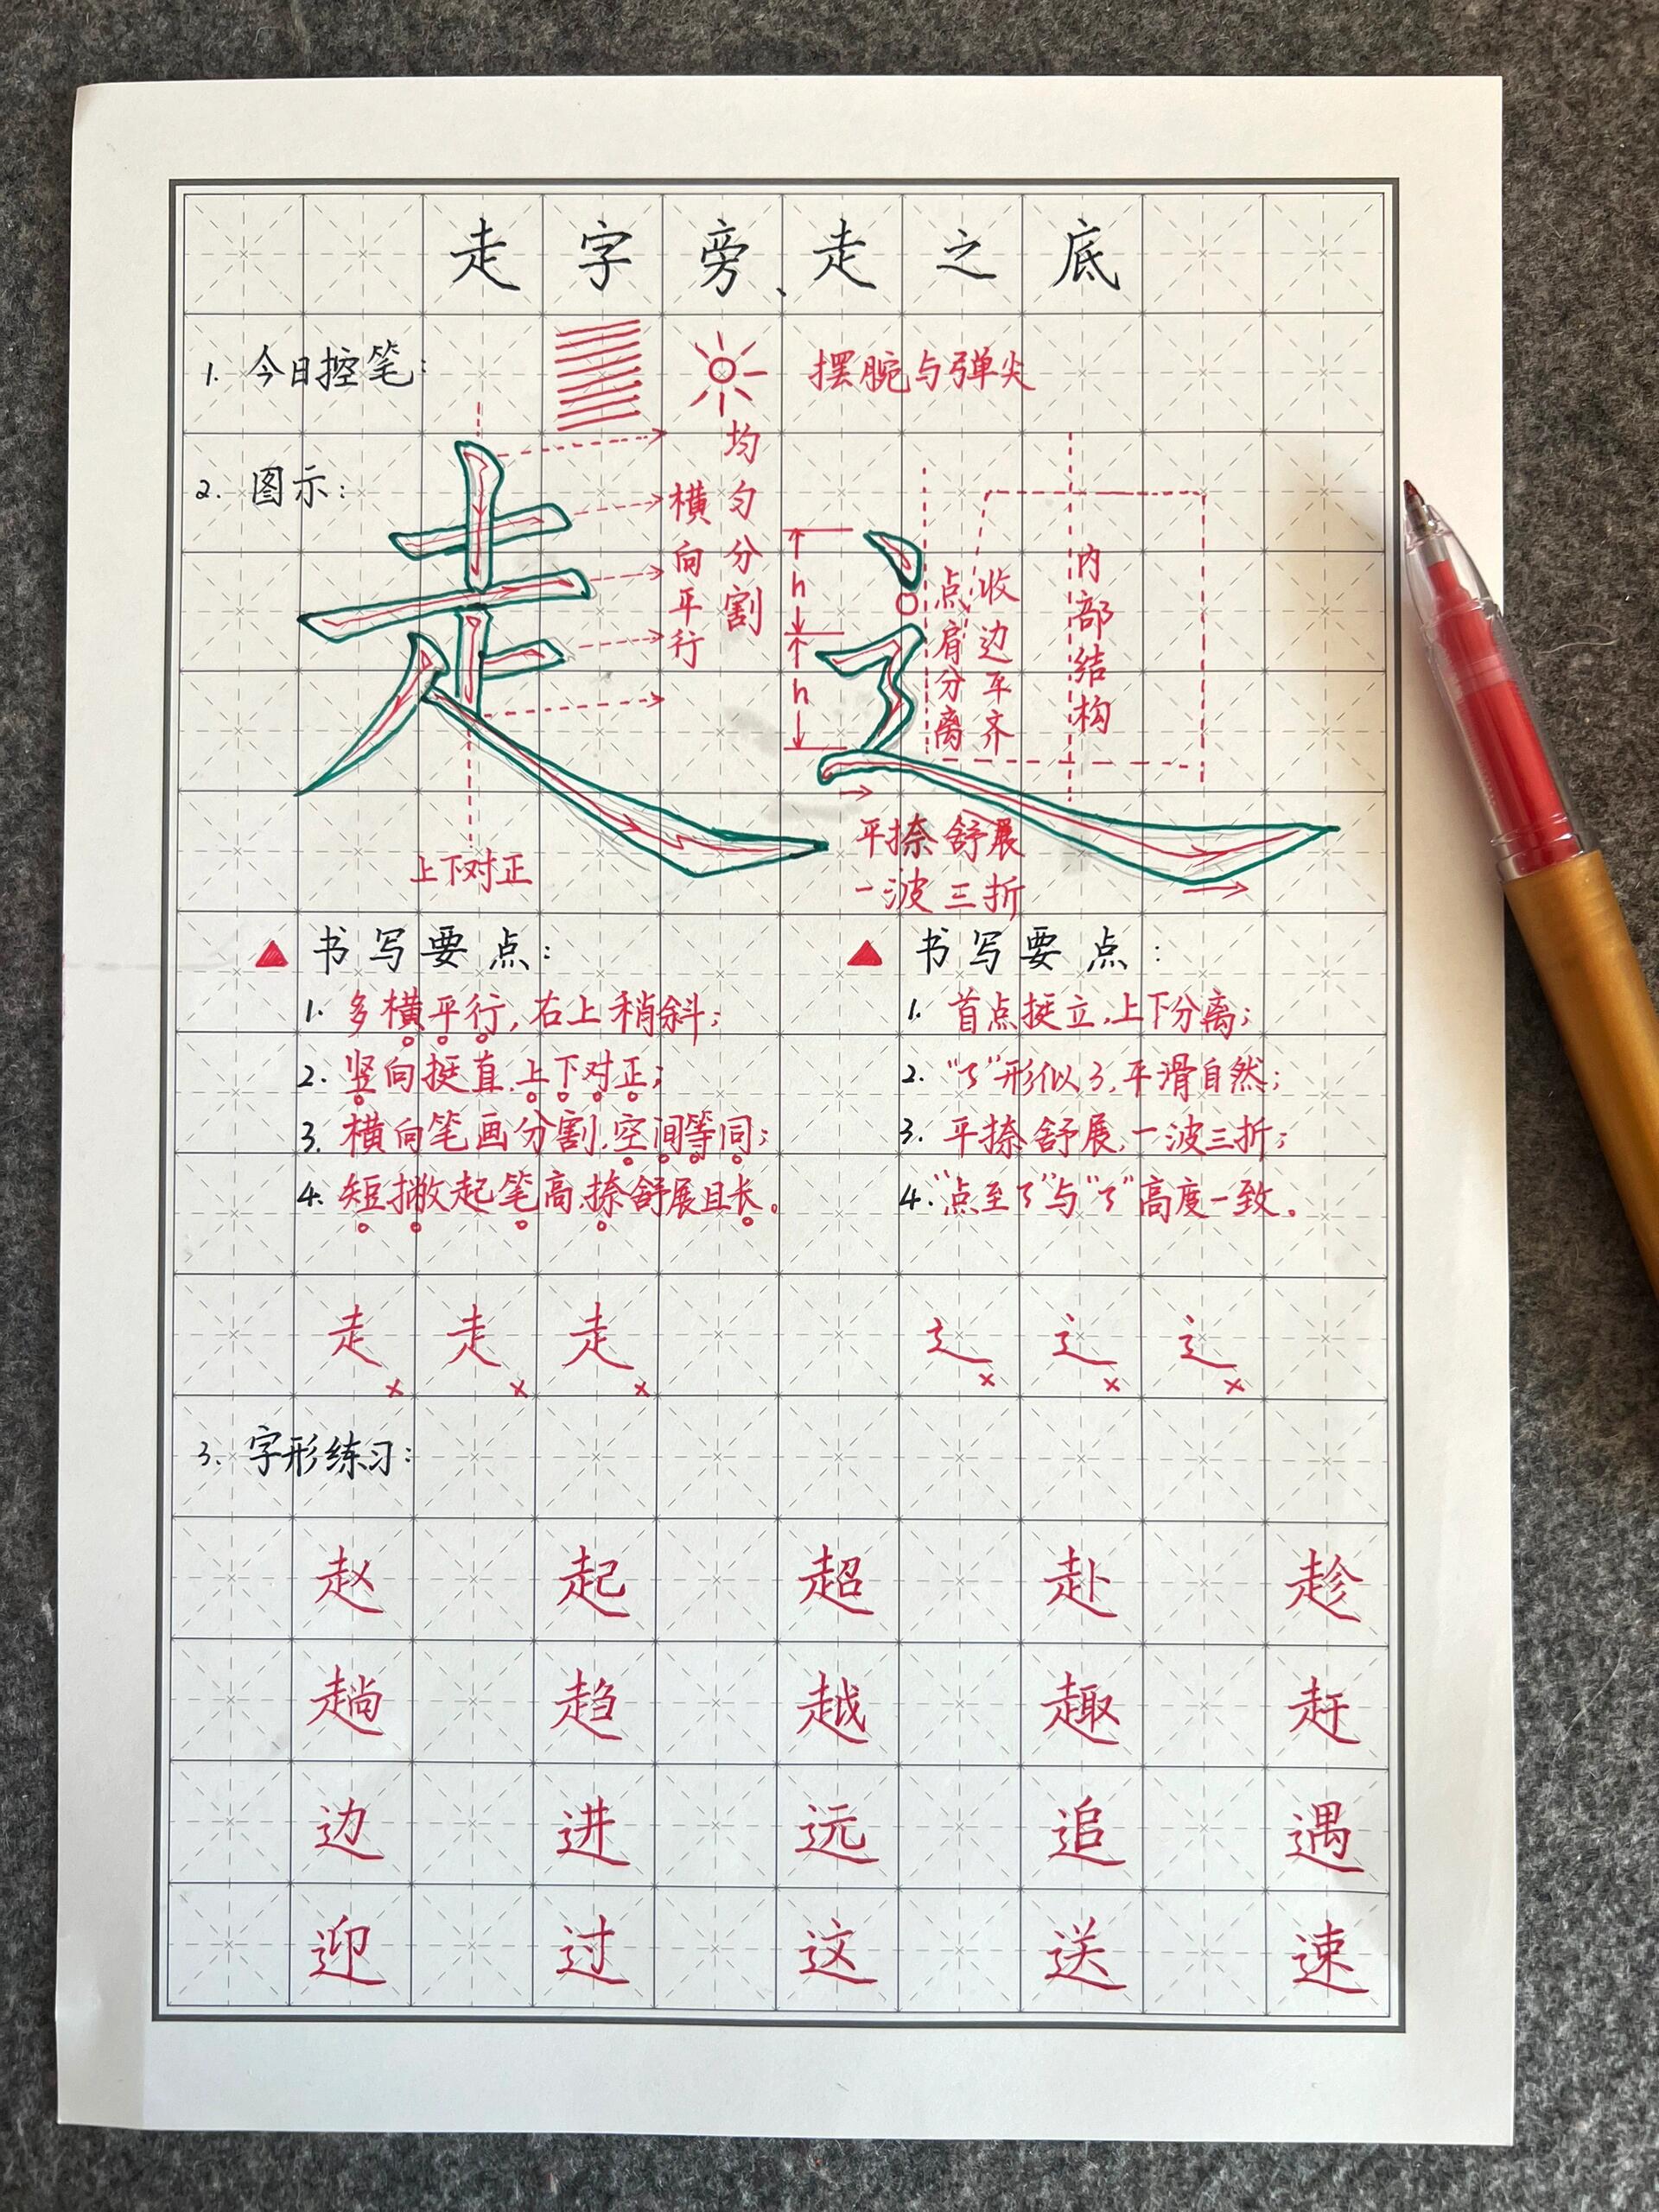 走字旁、走之底
1. 今日控笔：
摆腕与弹尖
2. 图示：
均匀分割
横向平行
上下对正
h
h
点肩分离
收边车齐
内部结构
平捺舒展
一波三折
▲书写要点：
1. 多横平行，右上稍斜；
2. 竖向挺直，上下对正；
3. 横向笔画分割，空间等同；
4. 短撇起笔高，捺舒展且长。
▲书写要点：
1. 首点挺立，上下分离；
2. “㇋”形似3，平滑自然；
3. 平捺舒展，一波三折；
4. “点至㇋”与“㇋”高度一致。
走 走 走 辶 辶 辶
× × × × × ×
3. 字形练习：
赵 起 超 赴 趁
趟 趋 越 趣 赶
边 进 远 追 遇
迎 过 这 送 速